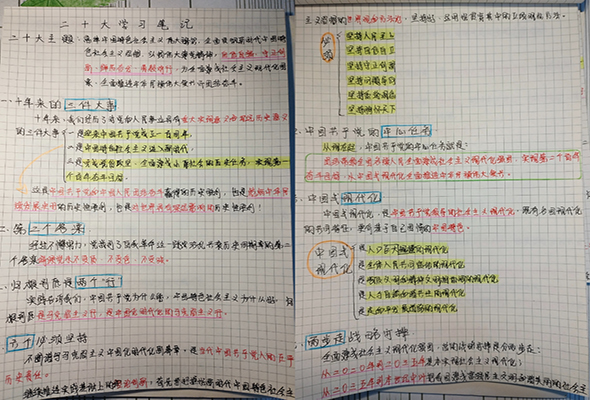 二十大学习笔记
二十大主题:高举中国特色社会主义伟大旗帜,全面贯彻新时代中国特
色社会主义思想,弘扬伟大建党精神,自信自强、守正创
新,踔厉奋发、勇毅前行,为全面建设社会主义现代化国
家、全面推进中华民族伟大复兴而团结奋斗。
一、十年来的三件大事
十年来,我们经历了对党和人民事业具有重大现实意义和深远历史意义
的三件大事:一是迎来中国共产党成立一百周年,
二是中国特色社会主义进入新时代,
三是完成脱贫攻坚、全面建成小康社会的历史任务,实现第一
个百年奋斗目标。
这是中国共产党和中国人民团结奋斗赢得的历史性胜利,也是彪炳中华民
族发展史册的历史性胜利,也是对世界具有深远影响的历史性胜利!
二、第二个答案
经过不懈努力,党找到了自我革命这一跳出治乱兴衰历史周期率的第二
个答案
三、归根到底是两个“行”
实践告诉我们,中国共产党为什么能,中国特色社会主义为什么好,归
根到底是马克思主义行,是中国化时代化的马克思主义行。
六个必须坚持
不断谱写马克思主义中国化时代化新篇章,是当代中国共产党人的庄严
历史责任。
继续推进实践基础上的理论创新,首先要把握好新时代中国特色社会主
必须
坚持人民至上
坚持自信自立
坚持守正创新
坚持问题导向
坚持系统观念
坚持胸怀天下
中国共产党的中心任务
从现在起,中国共产党的中心任务就是:
团结带领全国各族人民全面建成社会主义现代化强国、实现第二个百年
奋斗目标,以中国式现代化全面推进中华民族伟大复兴。
中国式现代化
中国式现代化,是中国共产党领导的社会主义现代化,既有各国现代化
的共同特征,更有基于自己国情的中国特色。
中国式
现代化
是人口规模巨大的现代化
是全体人民共同富裕的现代化
是物质文明和精神文明相协调的现代化
是人与自然和谐共生的现代化
是走和平发展道路的现代化
两步走战略安排
全面建成社会主义现代化强国,总的战略安排是分两步走:
从二〇二〇年到二〇三五年基本实现社会主义现代化;
从二〇三五年到本世纪中叶把我国建成富强民主文明和谐美丽的社会主